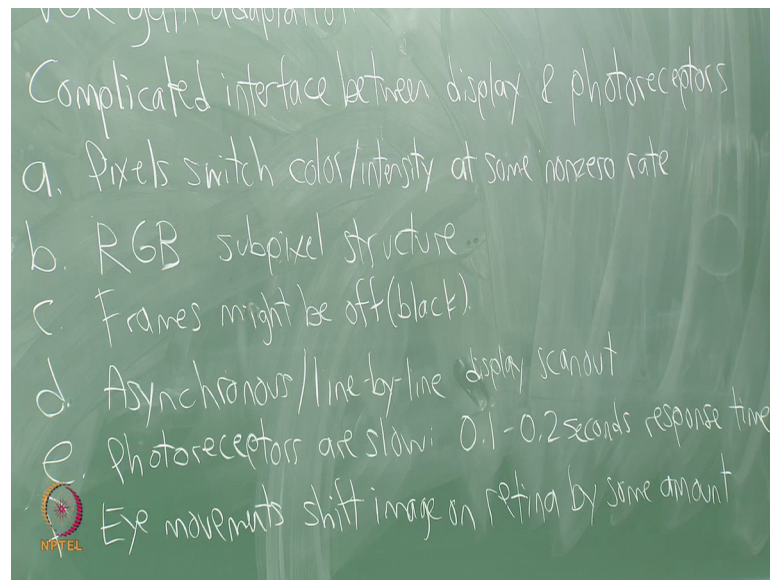 VOR gain adaptation
Complicated interface between display & photoreceptors
a. Pixels switch color/intensity at some nonzero rate
b. RGB subpixel structure
c. Frames might be off (black)
d. Asynchronous/line-by-line display scanout
e. Photoreceptors are slow: 0.1-0.2 seconds response time
Eye movements shift image on retina by some amount
NPTEL